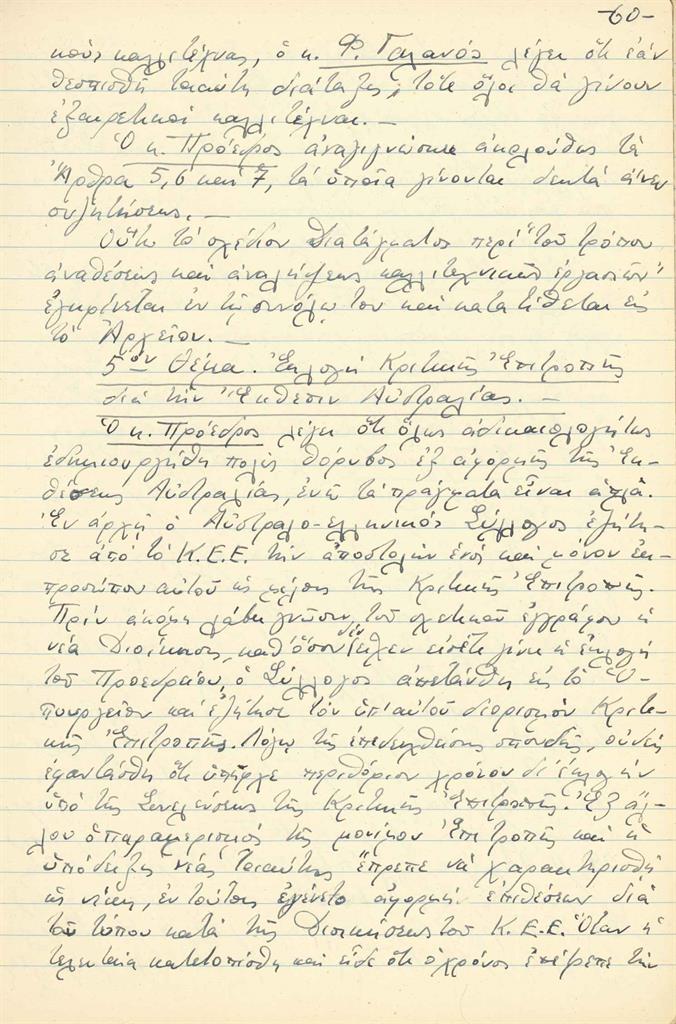 -60-
κοὺς καλλιτέχνας, ὁ κ. Φ. Γαλανός λέγει ὅτι ἐάν
θεσπισθῆ τοιαύτη διάταξις, τότε ὅλοι θά γίνουν
ἐξαιρετικοί καλλιτέχναι. —
Ὁ κ. Πρόεδρος ἀναγιγνώσκει ἀκολούθως τά
Ἄρθρα 5, 6 καί 7, τά ὁποῖα γίνονται δεκτά ἄνευ
συζητήσεως. —
Οὕτω τό σχέδιον Διατάγματος περί "τοῦ τρόπου
ἀναθέσεως καί ἀναλήψεως καλλιτεχνικῶν ἐργασιῶν"
ἐγκρίνεται ἐν τῷ συνόλῳ του καί κατατίθεται εἰς
τό Ἀρχεῖον. —
5ον Θέμα. Ἐκλογή Κριτικῆς Ἐπιτροπῆς
διά τήν Ἔκθεσιν Αὐστραλίας. —
Ὁ κ. Πρόεδρος λέγει ὅτι ὅλως ἀδικαιολογήτως
ἐδημιουργήθη πολύς θόρυβος ἐξ ἀφορμῆς τῆς Ἐκ-
θέσεως Αὐστραλίας, ἐνῶ τά πράγματα εἶναι ἁπλᾶ.
Ἐν ἀρχῇ ὁ Αὐστραλο-ελληνικός Σύλλογος ἐζήτη-
σε ἀπό τό Κ.Ε.Ε. τήν ἀποστολήν ἑνός καί μόνον ἐκ-
προσώπου αὐτοῦ ὡς μέλους τῆς Κριτικῆς Ἐπιτροπῆς.
Πρίν ἀκόμη λάβῃ γνῶσιν τοῦ σχετικοῦ ἐγγράφου ἡ
νέα Διοίκησις, καθ' ὅσον δέν εἶχεν εἰσέτι γίνει ἡ ἐκλογή
τοῦ Προεδρείου, ὁ Σύλλογος ἀπετάνθη εἰς τό Ὑ-
πουργεῖον καί ἐζήτησε τόν ὑπ' αὐτοῦ διορισμόν Κριτι-
κῆς Ἐπιτροπῆς. Λόγῳ τῆς ἐπιδειχθείσης σπουδῆς, οὐδείς
ἐφαντάσθη ὅτι ὑπῆρχε περιθώριον χρόνου δι' ἐκλογήν
ὑπό τῆς Συνελεύσεως τῆς Κριτικῆς Ἐπιτροπῆς. Ἐξ ἄλ-
λου ὁ παραμερισμός τῆς μονίμου Ἐπιτροπῆς καί ἡ
ὑπόδειξις νέας τοιαύτης ἔπρεπε νά χαρακτηρισθῆ
ὡς νίκη, ἐν τούτοις ἐγένετο ἀφορμή ἐπιθέσεων διά
τοῦ τύπου κατά τῆς Διοικήσεως τοῦ Κ.Ε.Ε. Ὅταν ἡ
τελευταία κατετοπίσθη καί εἶδε ὅτι ὁ χρόνος ἐπέτρεπε τήν